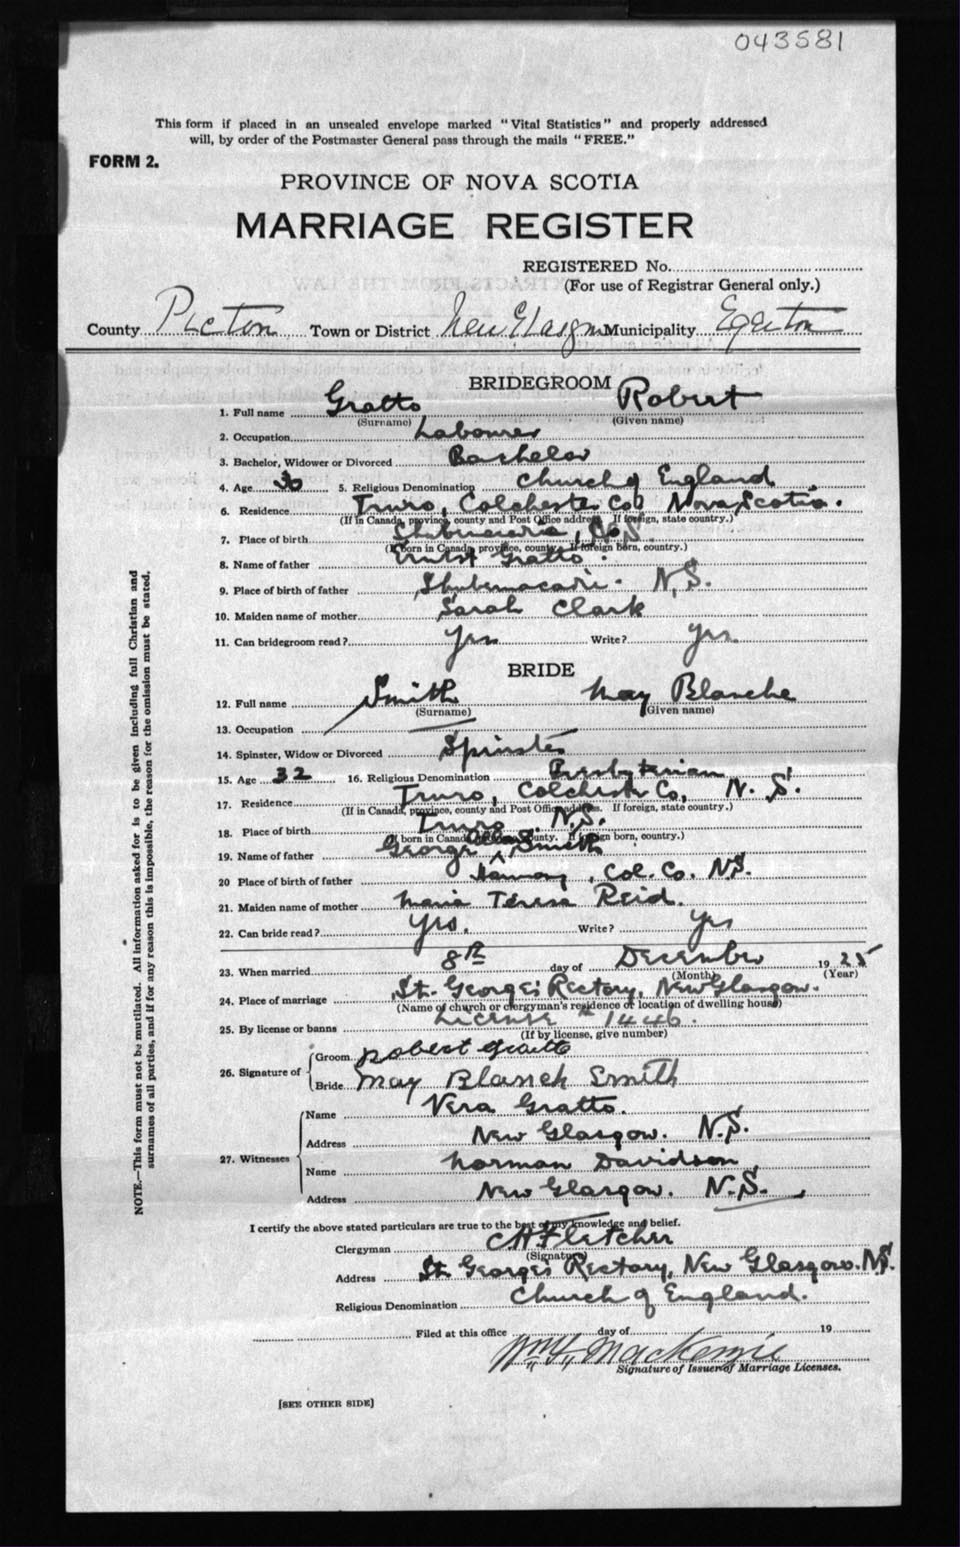 043581
This form if placed in an unsealed envelope marked "Vital Statistics" and properly addressed
will, by order of the Postmaster General pass through the mails "FREE."
FORM 2.
PROVINCE OF NOVA SCOTIA
MARRIAGE REGISTER
REGISTERED No.
(For use of Registrar General only.)
County Pictou Town or District New Glasgow Municipality Egerton
BRIDEGROOM
1. Full name Gratto Robert
(Surname) (Given name)
2. Occupation Labourer
3. Bachelor, Widower or Divorced Bachelor
4. Age 5. Religious Denomination Church of England
6. Residence Truro, Colchester Co. Nova Scotia.
(If in Canada, province, county and Post Office address. If foreign, state country.)
7. Place of birth Shubenacadie, N.S.
(If born in Canada, province, county. If foreign born, country.)
8. Name of father Gratto.
9. Place of birth of father Shubenacadie. N.S.
10. Maiden name of mother Sarah Clark
11. Can bridegroom read? Yes Write? Yes.
BRIDE
12. Full name Smith May Blanche
(Surname) (Given name)
13. Occupation
14. Spinster, Widow or Divorced Spinster
15. Age 32 16. Religious Denomination Presbyterian
17. Residence Truro, Colchester Co, N. S.
(If in Canada, province, county and Post Office address. If foreign, state country.)
18. Place of birth Truro N.S.
(If born in Canada, province, county. If foreign born, country.)
19. Name of father George Smith
20 Place of birth of father , Col. Co. N.S.
21. Maiden name of mother Maria Teresa Reid.
22. Can bride read? Yes. Write? Yes
23. When married 8th day of December 1925
(Month) (Year)
24. Place of marriage St. George's Rectory, New Glasgow.
(Name of church or clergyman's residence or location of dwelling house)
25. By license or banns License # 1446.
(If by license, give number)
26. Signature of Groom Robert Gratto
Bride May Blanch Smith
27. Witnesses Name Vera Gratto.
Address New Glasgow. N.S.
Name Norman Davidson
Address New Glasgow. N.S.
I certify the above stated particulars are true to the best of my knowledge and belief.
Clergyman CH Fletcher
(Signature)
Address St. George's Rectory, New Glasgow. N.S.
Religious Denomination Church of England.
Filed at this office day of 19
Wm. H. MacKenzie
Signature of Issuer of Marriage Licenses.
[SEE OTHER SIDE]
NOTE.—This form must not be mutilated. All information asked for is to be given including full Christian and
surnames of all parties, and if for any reason this is impossible, the reason for the omission must be stated.